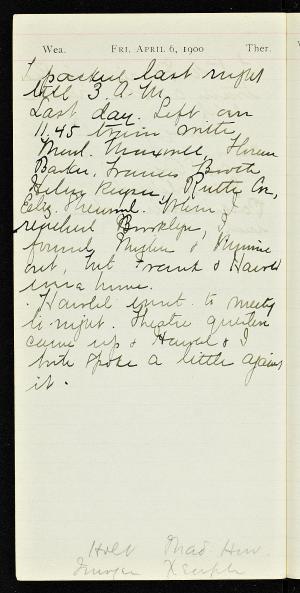 Wea. Fri. April 6, 1900 Ther.
I packed last night
till 3 A.M.
Last day. Left on
11.45 train with
Maxwell, Floren
Baker, Frances Booth
Helen
Eliz. When I
reached Brooklyn, I
found & Minnie
out, but Frank & Harold
were home.
Harold went to meeting
to night. Theatre question
came up & Harold & I
both spoke a little against
it.
Holt Mad.